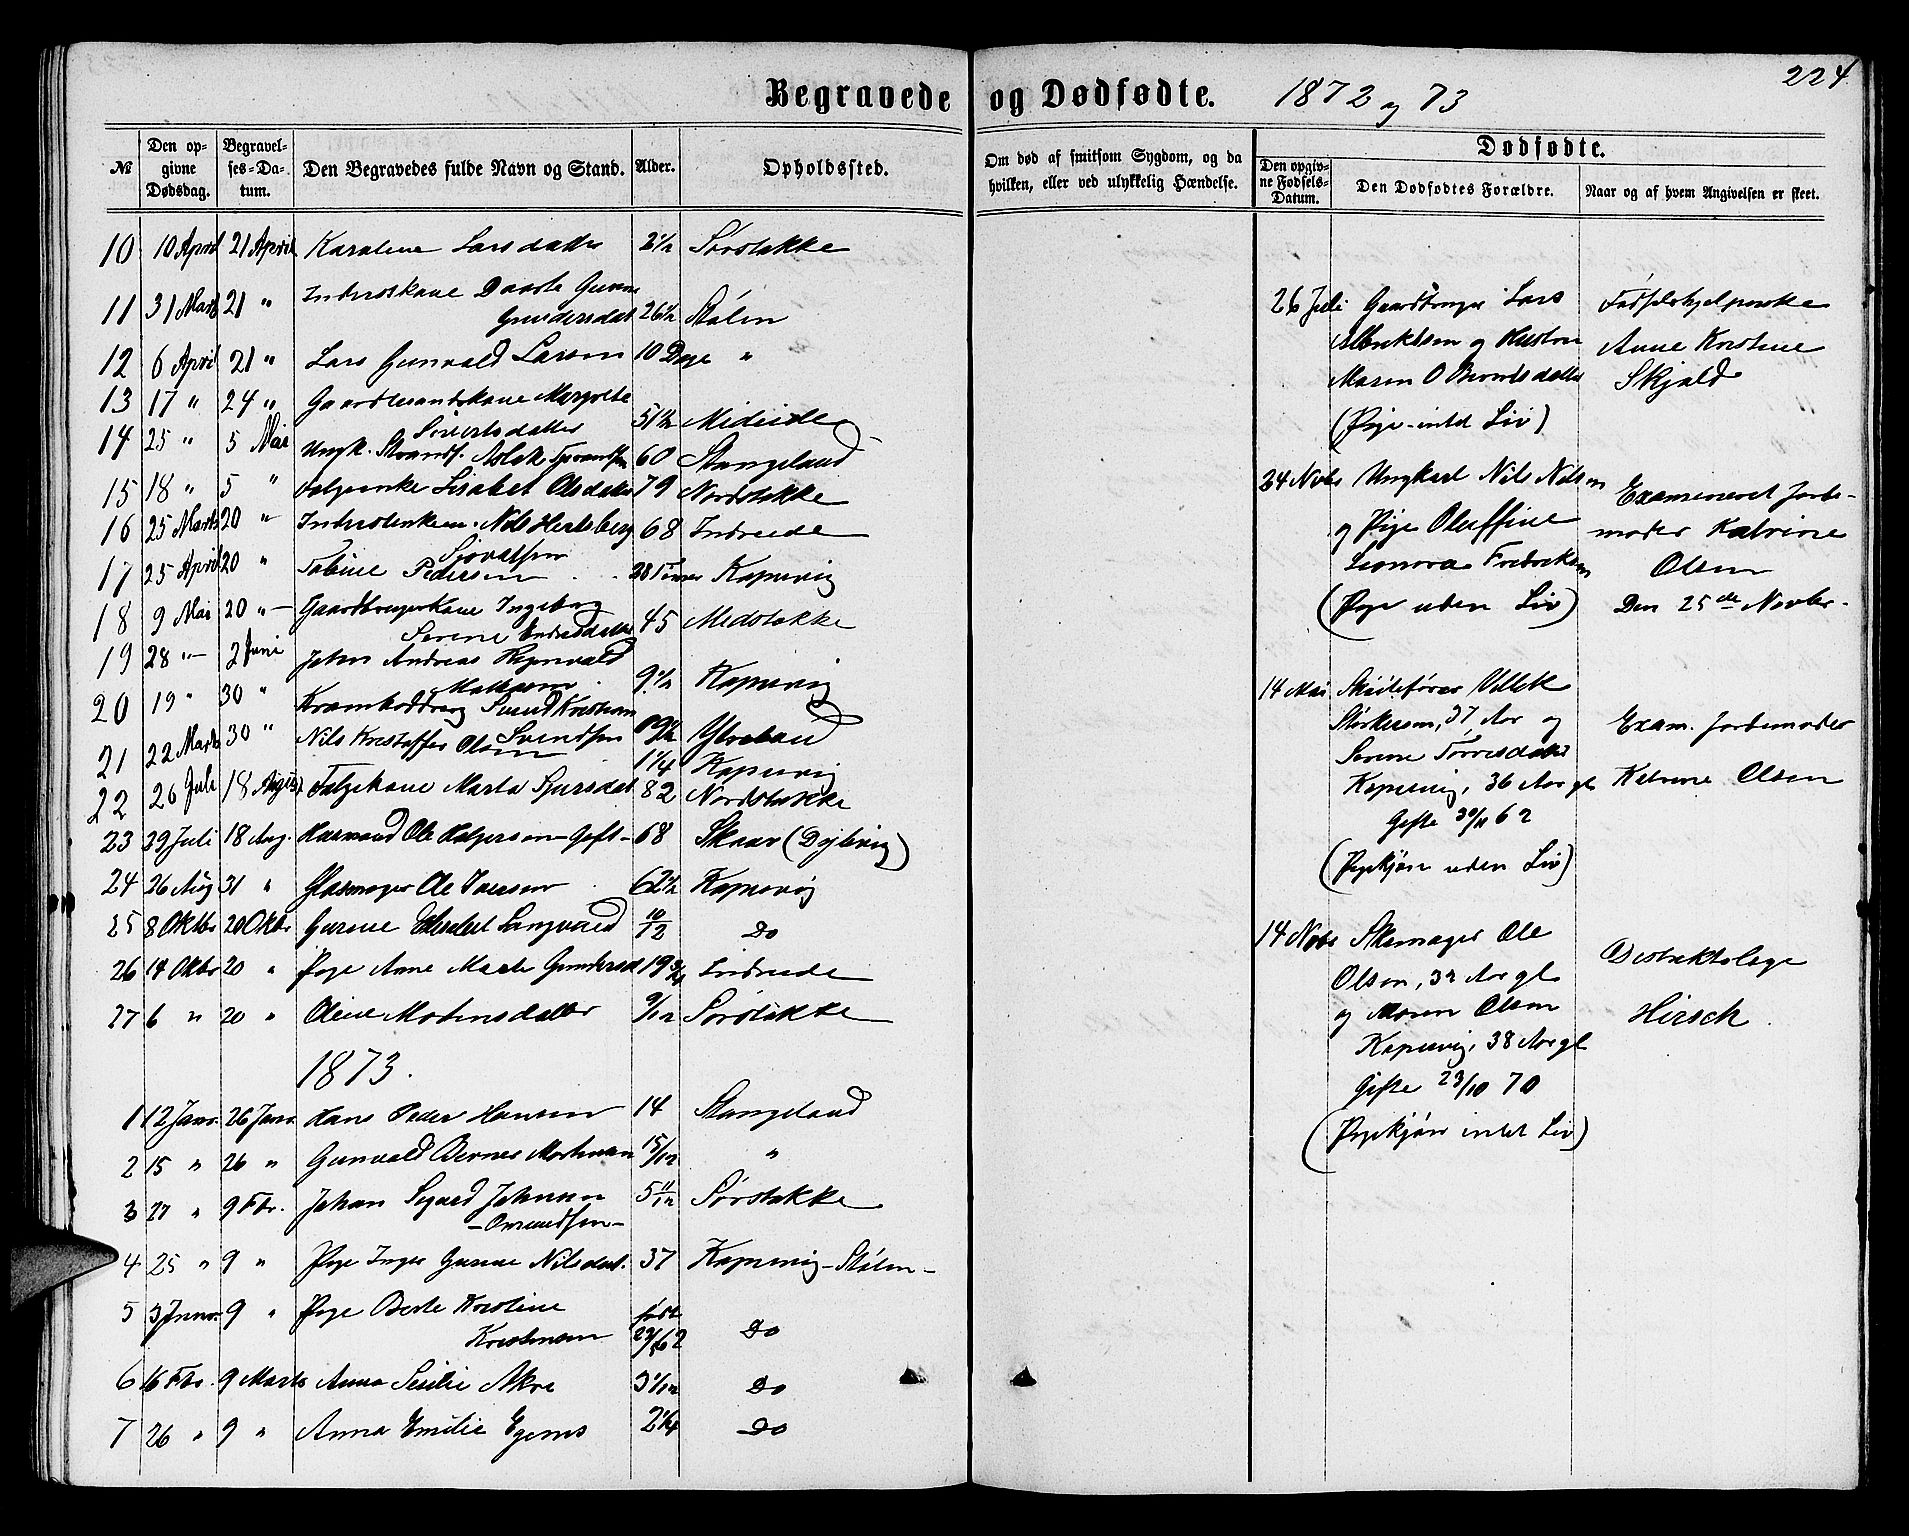 Begravede og Dødfødte. 1872 og 73
224
№
Den opgivne Dødsdag.
Begravelses-Datum.
Den Begravedes fulde Navn og Stand.
Alder.
Opholdssted.
Om død af smitsom Sygdom, og da hvilken, eller ved ulykkelig Hændelse.
Dødfødte.
Den opgivne Fødsels-Datum.
Den Dødfødtes Forældre.
Naar og af hvem Angivelsen er skeet.
10 10 April 21 April Karoline Larsdatter 2 1/2 Sørstokke
11 31 Marts 21 " Inderstkone Gunne
Gundersdat 26 1/2 Stølen
12 6 April 21 " Lars Gunvald Larsen 10 Dage "
13 17 " 24 " Gaardmandskone
Sivertsdatter 51 1/2 Mideide
14 25 " 5 Mai Ungk. Strands. Aslak 60 Stangeland
15 18 " 5 " Lisabet Olsdatter 79 Nordstokke
16 25 Marts 20 " Nils Hertsberg
Sjovatsen 68 Indreeide
17 25 April 20 " Tobine Pedersen 28 Timer Kopervig
18 9 Mai 20 " Gaardbrugerkone Ingeborg
Serene Endresdatter 45 Medstokke
19 28 " 2 Juni John Andreas
9 1/2 Kopervig
20 19 " 30 " Svend Kristian
Svendsen Ytreland
21 22 Marts 30 " Nils Kristoffer Olsen 1 1/4 Kopervig
22 26 Juli 18 August Marta Sjursdat 82 Nordstokke
23 29 Juli 18 Aug. Husmand Ole Halgersen - Gift - 68 Skaar (Dybvig)
24 26 Aug 31 " Glasmager Ole Iversen 62 1/2 Kopervig
25 8 Oktbr 20 Oktbr Gurine Langvand 10/12 Do
26 14 Oktbr 20 " Pige Anne Marte Gundersd 19 3/4 Indreeide
27 6 " 20 " Oline Mortensdatter 9/12 Sørstokke
1873.
1 12 Janr. 26 Janr. Hans Peder Hansen 14 Stangeland
2 15 " 26 " Gunvald Bernes Mortensen 15/12 "
3 27 " 9 Fbr. Johan Sigvard Johnsen
- Omundsen - 5 11/12 Sørstokke
4 25 " 9 " Pige Inger Gurine Nilsdat. 37 Kopervig - Stølen -
5 3 Janr. 9 " Pige Berte Kristine
Kristensen født 62 Do
6 16 Fbr. 9 Marts Anna Sesilie Akre 3 1/12 Do
7 26 " 9 " Anna Emilie Egenes 2 1/4 Do
26 Juli Gaardbruger Lars
Albriktsen og Hustru
Maren O Berentsdatter
(Pige - intet Liv)
Fødselshjelperske
Anne Kristine
Skjold
24 Novbr Ungkarl Nils Nilsen
og Pige Oluffine
Leonora Fredriksen
(Pige uden Liv)
Examineret Jorde-
moder Katrine
Olsen
Den 25de Novbr.
14 Mai Skibsfører Villik
Størkersen, 37 Aar og
Serene Torresdatter
Kopervig, 36 Aar gl
Gifte 30/11 62
(Pigekjøn uden Liv)
Exam. Jordemoder
Katrine Olsen
14 Novbr Skomager Ole
Olsen, 32 Aar gl
og Maren Olsen
Kopervig, 38 Aar gl
Gifte 23/10 70
(Pigekjøn intet Liv)
Distriktslæge
Hirsch